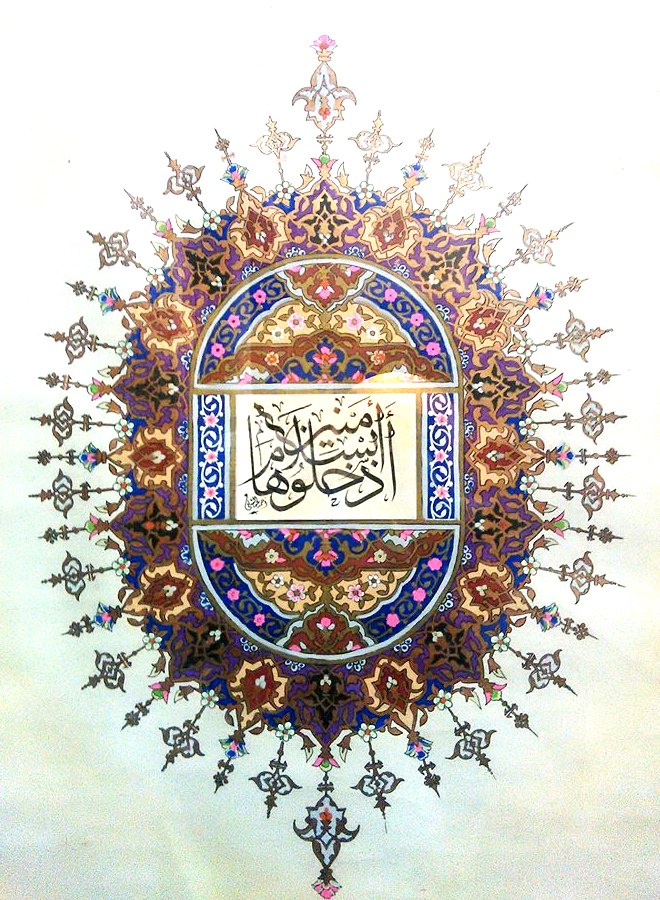 أدخلُوها بسلام أمنين